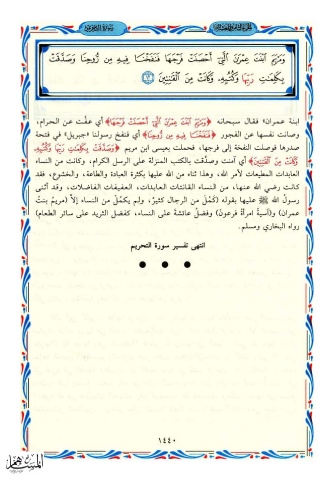 سورة التحريم
وَمَرْيَمَ ابْنَتَ عِمْرَانَ الَّتِي أَحْصَنَتْ فَرْجَهَا فَنَفَخْنَا فِيهِ مِن رُّوحِنَا وَصَدَّقَتْ
بِكَلِمَاتِ رَبِّهَا وَكُتُبِهِ وَكَانَتْ مِنَ الْقَانِتِينَ ﴿١٢﴾
ابنة عمران، فقال سبحانه ﴿وَمَرْيَمَ ابْنَتَ عِمْرَانَ الَّتِي أَحْصَنَتْ فَرْجَهَا﴾ أي عفَّت عن الحرام،
وصانت نفسها عن الفجور ﴿فَنَفَخْنَا فِيهِ مِن رُّوحِنَا﴾ أي فنفخ رسولنا «جبريل» في فتحة
صدرها فوصلت النفخة إلى فرجها، فحملت بعيسى ابن مريم ﴿وَصَدَّقَتْ بِكَلِمَاتِ رَبِّهَا وَكُتُبِهِ
وَكَانَتْ مِنَ الْقَانِتِينَ﴾ أي آمنت وصدَّقت بالكتب المنزلة على الرسل الكرام، وكانت من النساء
العابدات المطيعات لأمر الله، وهذا ثناء من الله عليها بكثرة العبادة والطاعة، والخشوع، فقد
كانت رضي الله عنها، من النساء القانتات العابدات، العفيفات الفاضلات، وقد أثنى
رسولُ الله ﷺ عليها بقوله (كَمُلَ من الرجال كثيرٌ، ولم يكمُلْ من النساء إلاَّ (مريمُ بنتُ
عمران) و(آسيةُ امرأةُ فرعونَ) وفضلُ عائشة على النساء، كفضل الثريد على سائر الطعام)
رواه البخاري ومسلم.
انتهى تفسير سورة التحريم
١٤٤٠